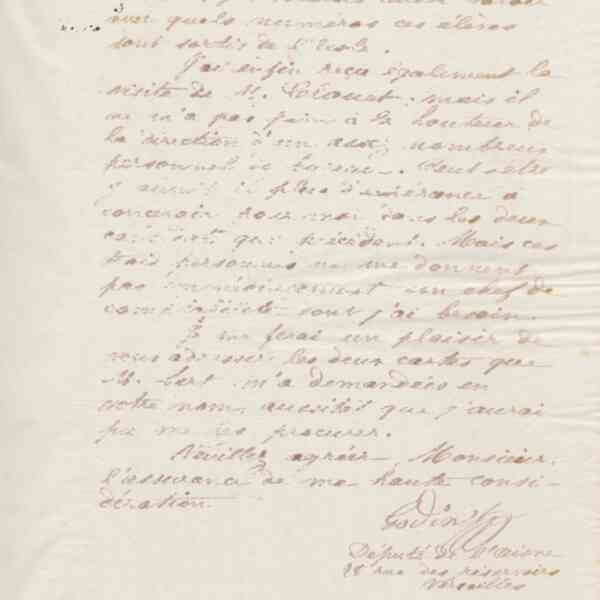 avec quels numéros ces élèves
sont sortis de l'Ecole.
J'ai enfin reçu également la
visite de M. mais il
ne m'a pas paru à la hauteur de
la direction d'un assez nombreux
personnel de bureau. Peut-être
y aurait il plus d'espérance à
concevoir pour moi dans les deux
cas qui précèdent. Mais ces
trois personnes ne me donnent
pas un chef de
comptabilité dont j'ai besoin.
Je me ferai un plaisir de
vous adresser les deux cartes que
M. m'a demandées en
votre nom aussitôt que j'aurai
pu me les procurer.
Veuillez agréer Monsieur,
l'assurance de ma haute consi-
dération.
Godin
Député de l'Aisne
rue des réservoirs
Versailles